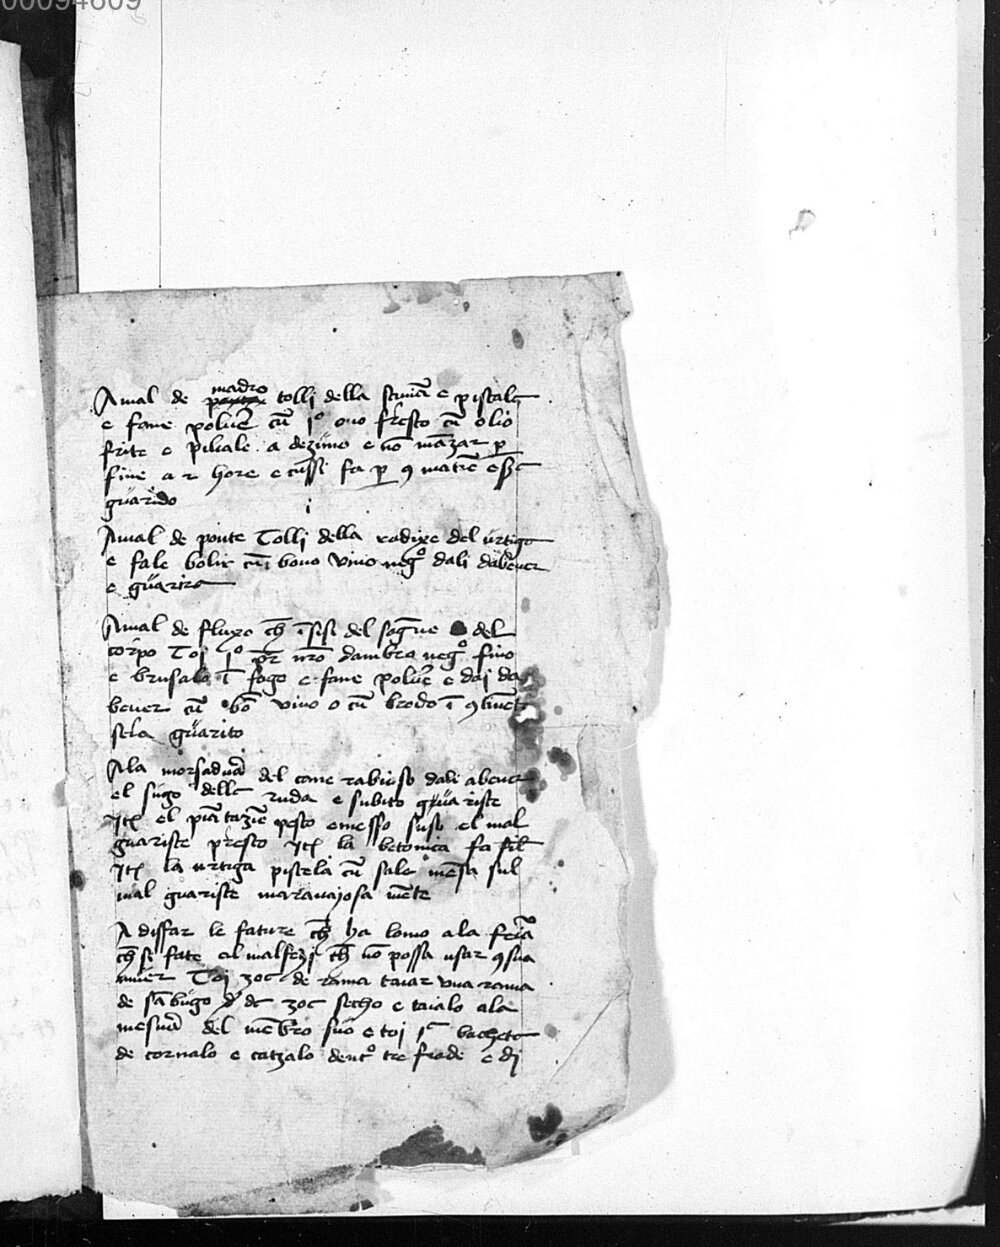 00094609
Amal de madro tolli della e pistale
e fane poluẽ cũ jº ouo fresto cũ olio
frite e a dezuno e nõ mãzar p
fine a 2 hore e cussi fa p 9 matĩe e
guarido
Amal de ponte Tolli della radixe del urtiga
e fale bolir cũ bono vino negº dali dabeuer
e guarira
Amal de fluxo ch del sãgue del
corpo Toi dambra negº fino
e brusalo ĩ fogo e fane poluẽ e dai da
beuer cũ bõ vino o cũ brodo ĩ
sela guarito
Ala morsadura del cane rabioso dali abeuer
el sugo della ruda e subito guariste
Itẽ el piãtazẽ pesto emesso suso el mal
guariste presto Itẽ la betonica fa
Itẽ la urtiga pistela cũ sale mesa sul
mal guariste marauajosa mẽte
A disfar le fature ch ha lomo ala
ch se fate el malfezi ch nõ possa usar 9 sua
muier Toi zoe de rama taiar vna rama
de sãbugo zoe secho e taialo ala
mesura del mẽbro suo e toi jª bacheta
de cornalo e catzalo dentº tre fiade e di